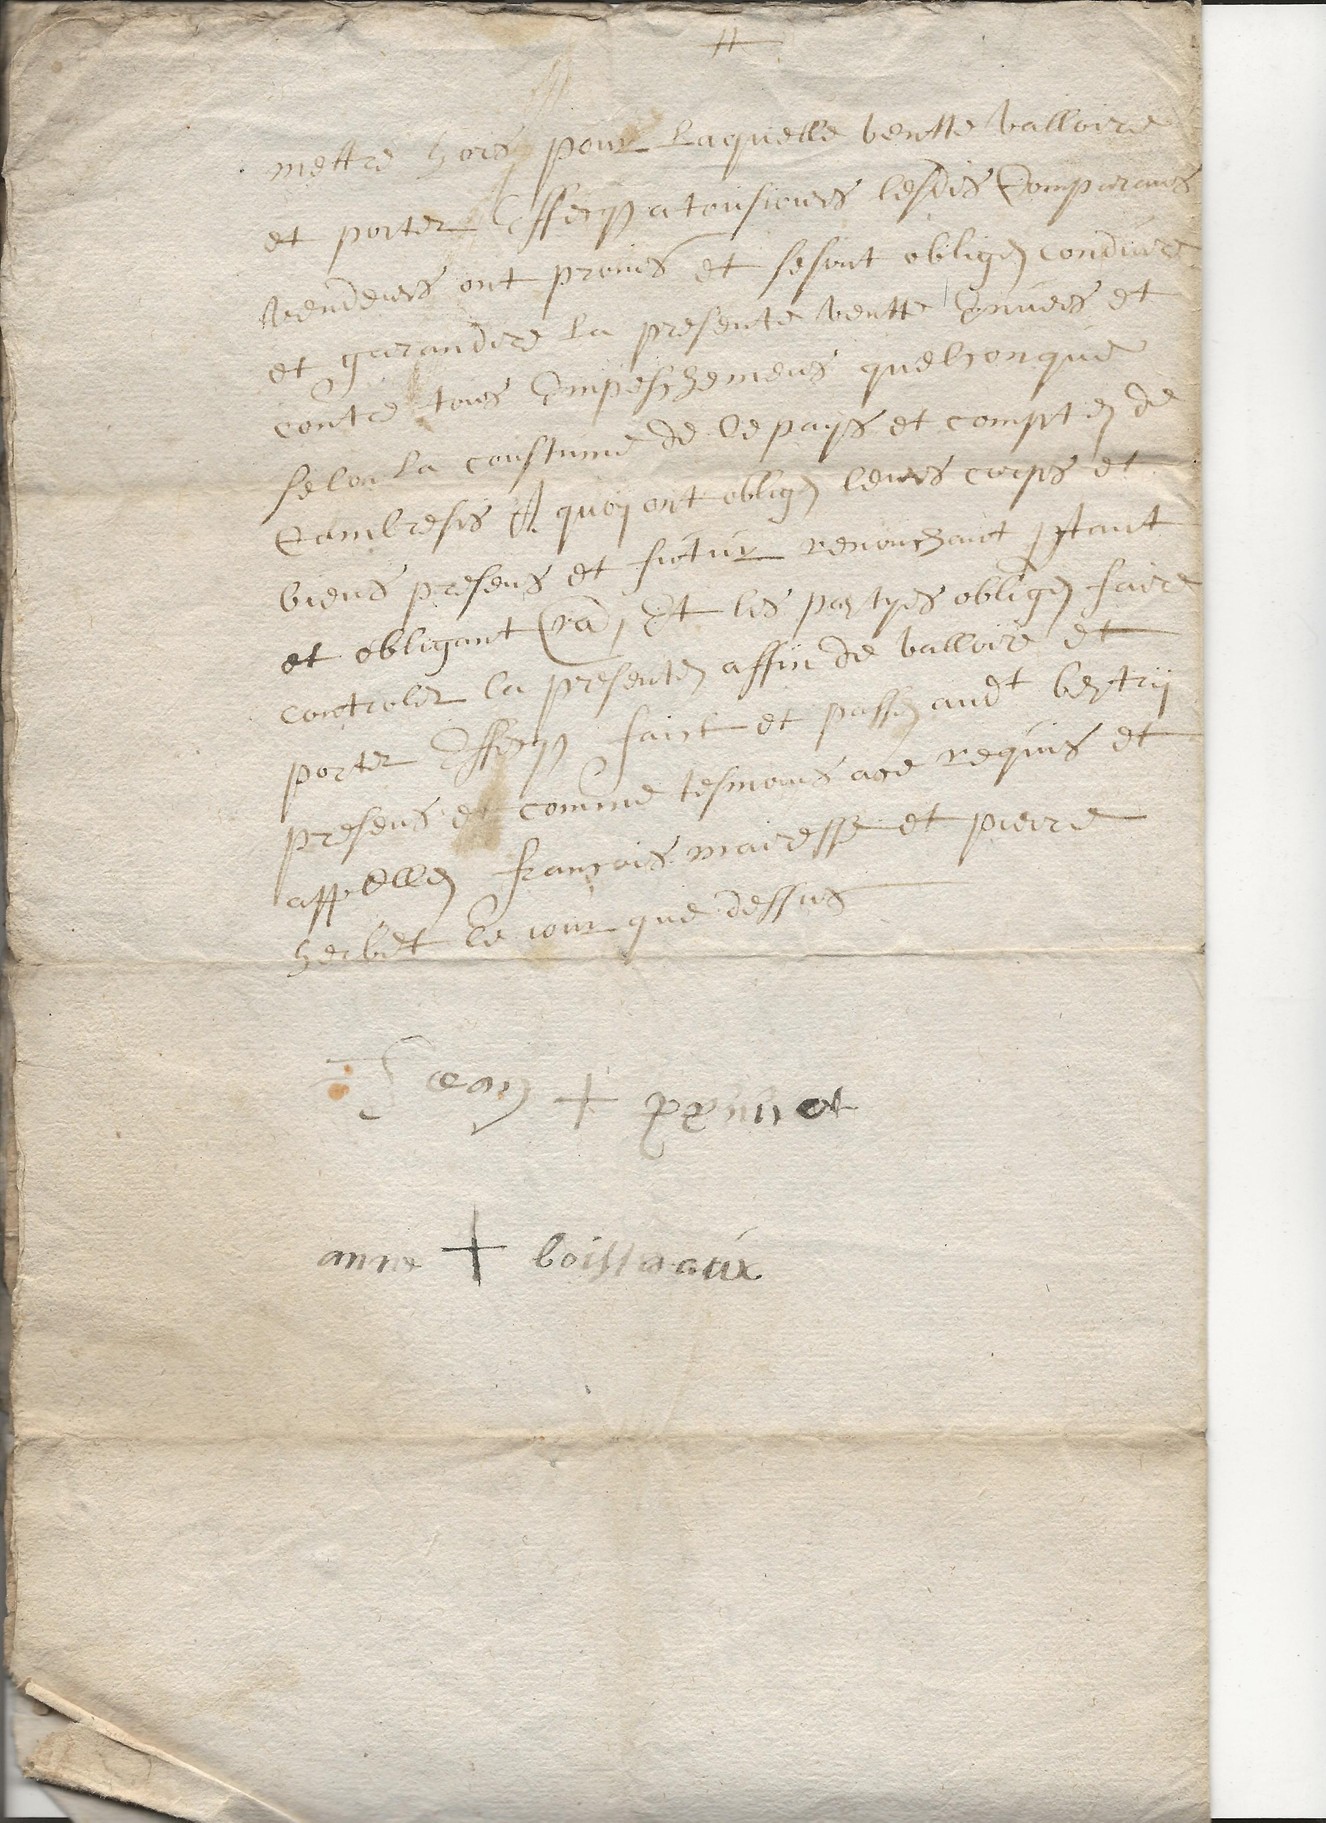 mettre hors pour laquelle ventte valloire
et porter Effecq a tousiours lesdis Comparans
vendeurs ont promis et se sont obligé conduire
et garandire la presente ventte Envers et
contre tous Empeschemens quelconque
selon la coustume de ce pays et compté de
Cambresis A quoy ont obligé leurs corps et
biens presens et futur renonchant partant
et obligant Et les partyes obligé faire
controler la presente affin de valloire et
porter Effecq faict et passé aud^t bertry
presens et comme tesmoins a ce requis et
appellé francois mairesse et pierre
herbet le iour que dessus
Jean +
anne + boisseaux